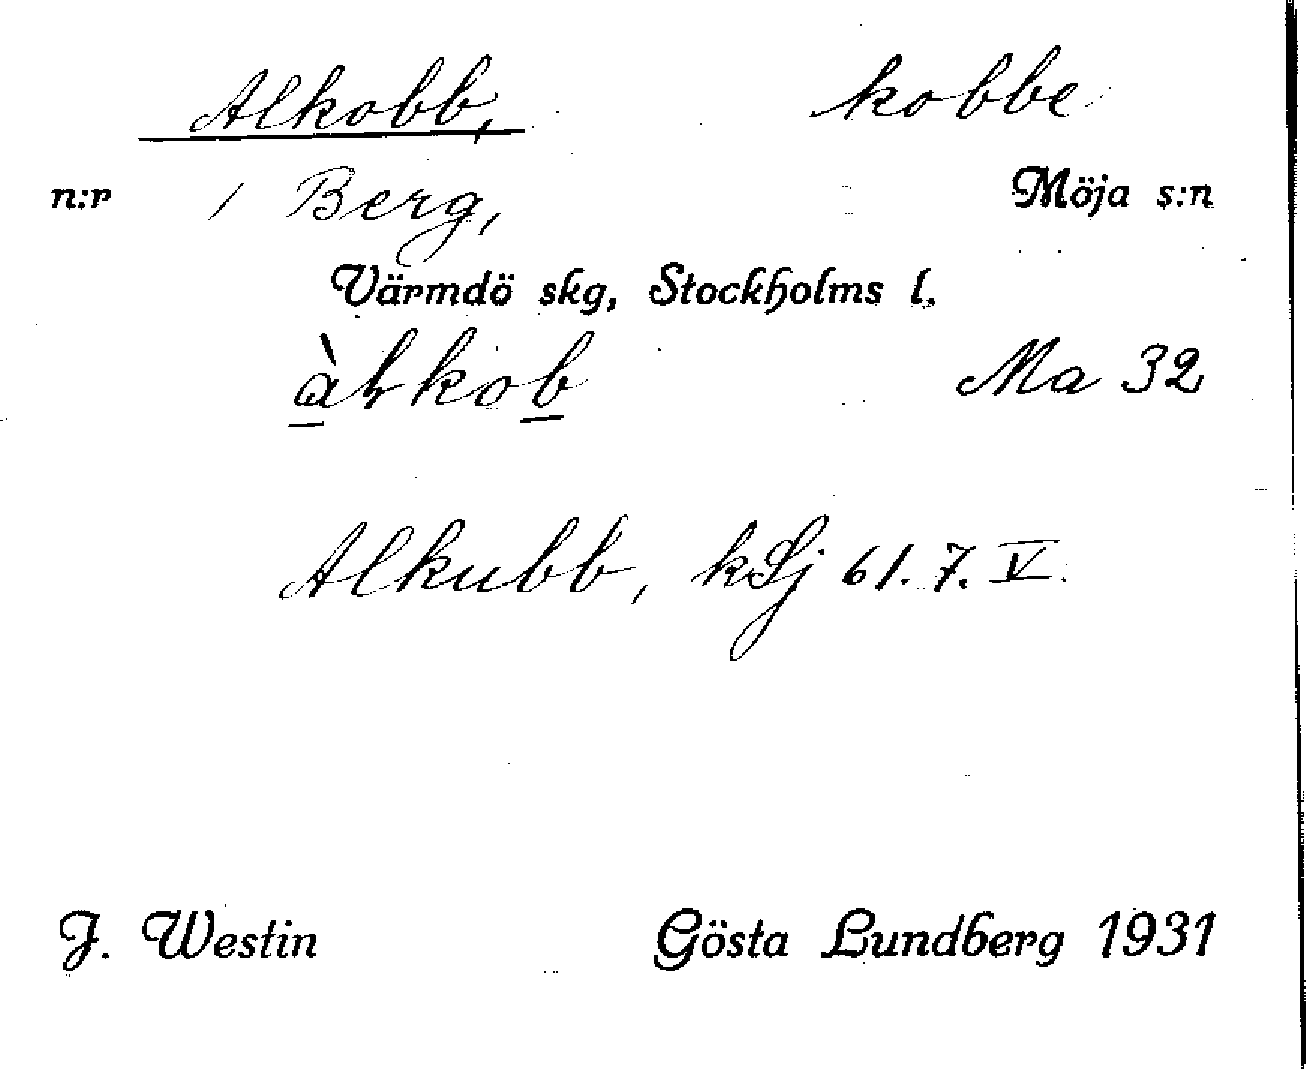 Alkobb, kobbe
n:r 1 Berg, Möja s:n
Värmdö skg, Stockholms l.
àƚkob Ma 32
Alkubb, kSj 61. 7. V.
J. Westin Gösta Lundberg 1931